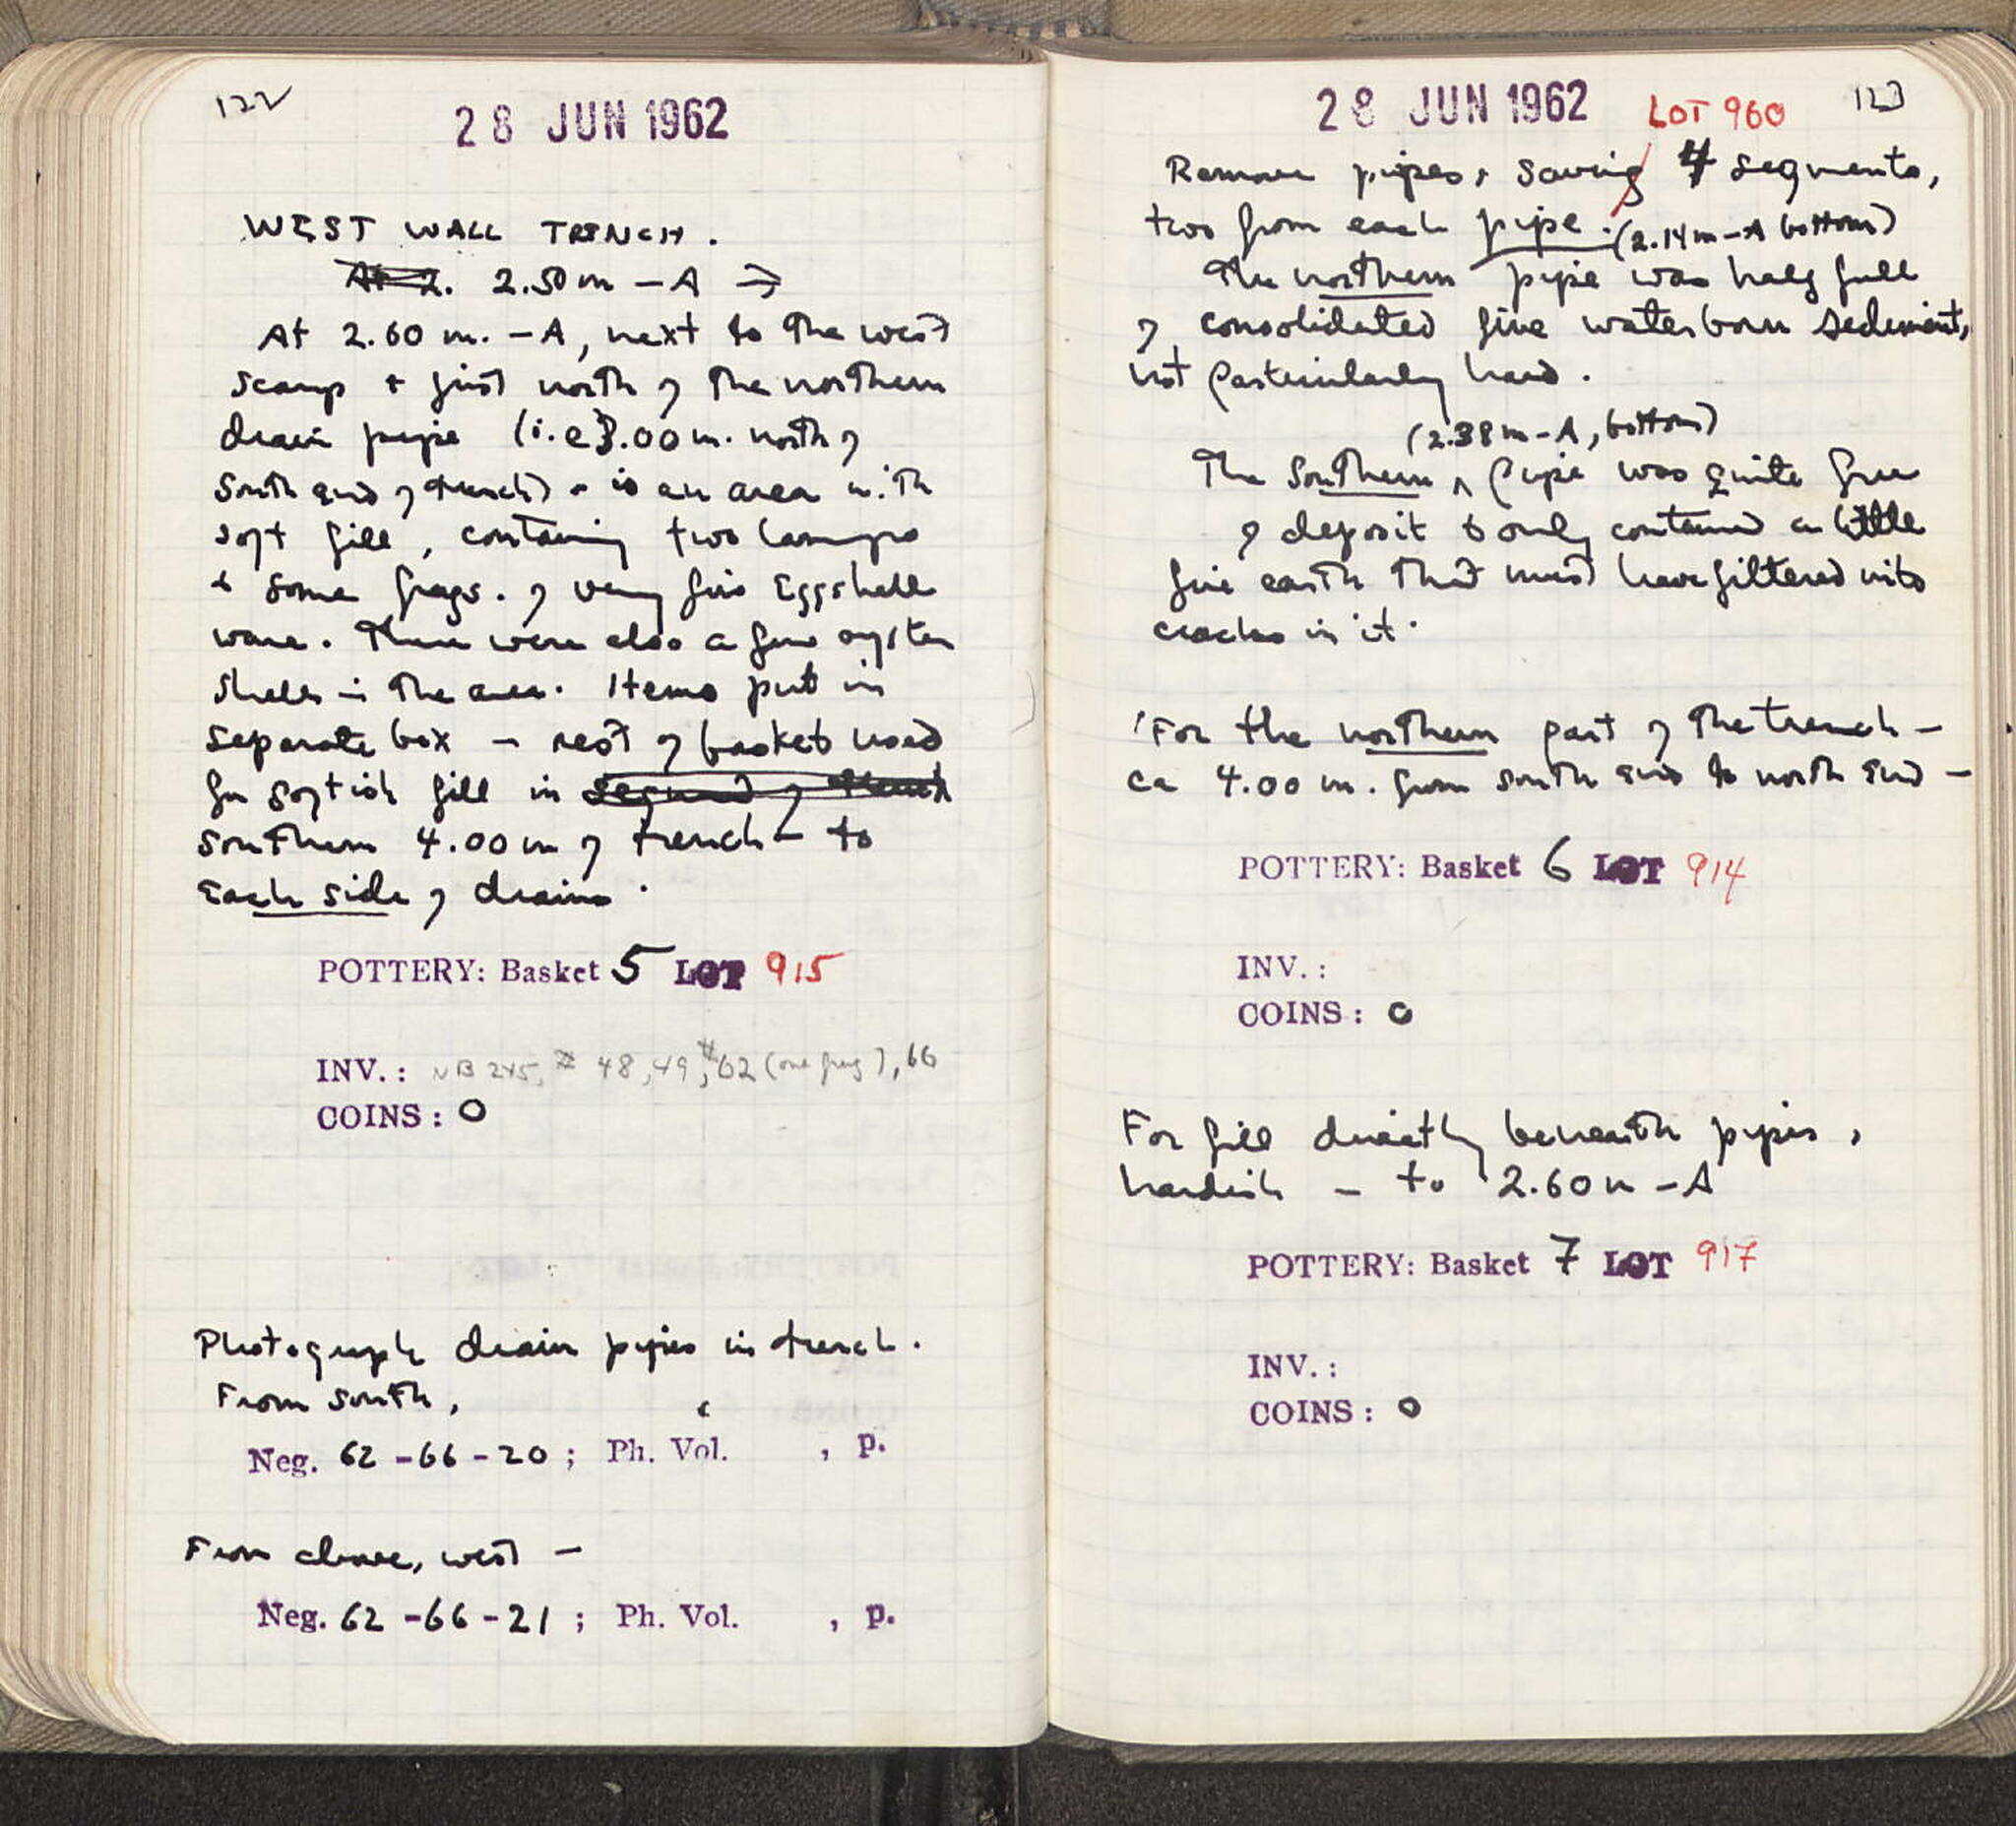 122
28 JUN 1962
WEST WALL TRENCH.
At 2. 2.50 m - A →
At 2.60 m. - A, next to the west
scarp + just north of the northern
drain pipe (i.e 3.00 m. north of
south end of trench) - is an area with
soft fill, containing two lamps
+ some frags. of very fine Eggshell
ware. There were also a few oyster
shells in the area. Items put in
separate box - rest of basket used
for softish fill in segment of trench
southern 4.00 m of trench - to
Each side of drains.
POTTERY: Basket 5 LOT 915
INV.: NB 245, # 48, 49, #62 (one frag), 66
COINS: 0
Photograph drain pipes in trench.
From south,
Neg. 62-66-20; Ph. Vol. , p.
From above, west -
Neg. 62-66-21; Ph. Vol. , p.
28 JUN 1962 LOT 960 123
Remove pipes, saving 4 segments,
two from each pipe. (2.14m-A bottom)
The northern pipe was half full
of consolidated fine waterborn sediment,
not particularly hard.
(2.38m-A, bottom)
The Southern ^ pipe was quite free
of deposit & only contained a little
fine earth that must have filtered into
cracks in it.
For the northern part of the trench -
ca 4.00 m. from south end to north end -
POTTERY: Basket 6 LOT 914
INV.:
COINS: 0
For fill directly beneath pipes,
hardish - to 2.60 m - A
POTTERY: Basket 7 LOT 917
INV.:
COINS: 0